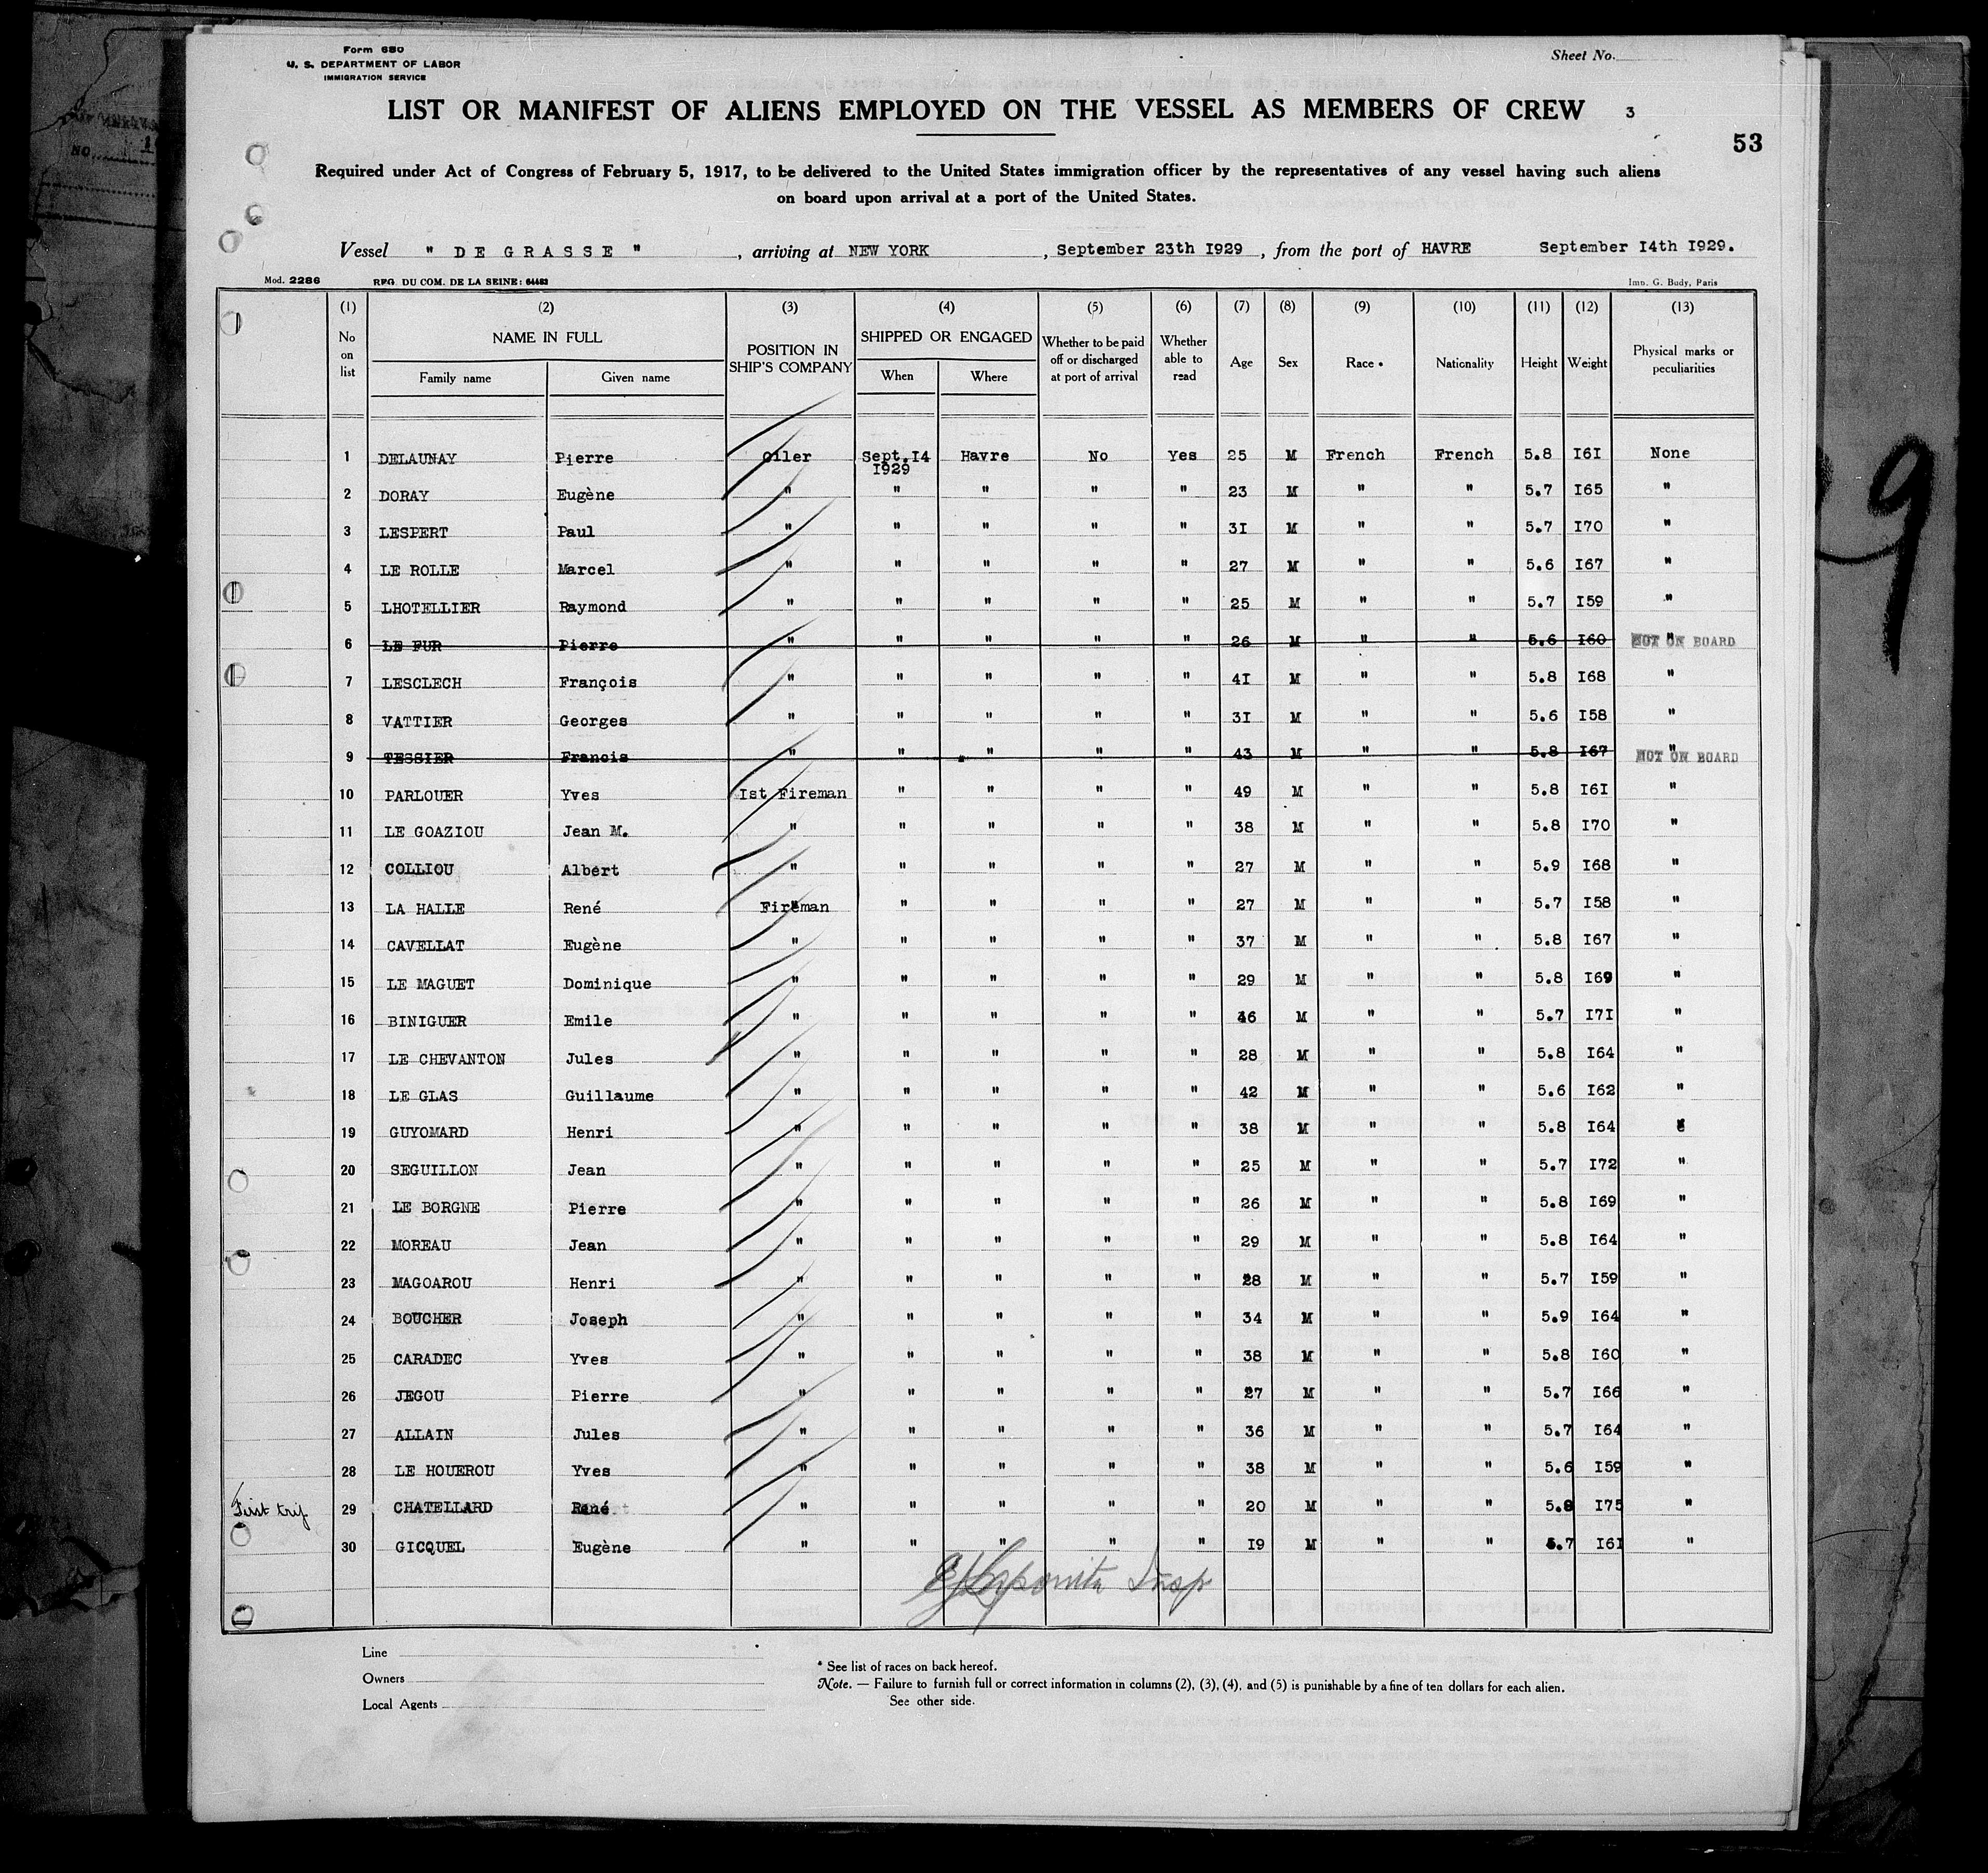 Form 680
U. S. DEPARTMENT OF LABOR
IMMIGRATION SERVICE
Sheet No.
LIST OR MANIFEST OF ALIENS EMPLOYED ON THE VESSEL AS MEMBERS OF CREW 3
53
Required under Act of Congress of February 5, 1917, to be delivered to the United States immigration officer by the representatives of any vessel having such aliens
on board upon arrival at a port of the United States.
Vessel " DE GRASSE " , arriving at NEW YORK , September 23th I929 , from the port of HAVRE September I4th I929.
Mod. 2286 REG. DU COM. DE LA SEINE: 64483 Imp. G. Budy, Paris
(1) (2) (3) (4) (5) (6) (7) (8) (9) (10) (11) (12) (13)
No on list NAME IN FULL Family name Given name POSITION IN SHIP'S COMPANY SHIPPED OR ENGAGED When Where Whether to be paid off or discharged at port of arrival Whether able to read Age Sex Race * Nationality Height Weight Physical marks or peculiarities
1 DELAUNAY Pierre Oiler Sept.I4 I929 Havre No Yes 25 M French French 5.8 I6I None
2 DORAY Eugène " " " " " 23 M " " 5.7 I65 "
3 LESPERT Paul " " " " " 3I M " " 5.7 I70 "
4 LE ROLLE Marcel " " " " " 27 M " " 5.6 I67 "
5 LHOTELLIER Raymond " " " " " 25 M " " 5.7 I59 "
6 LE FUR Pierre " " " " " 26 M " " 5.6 I60 " NOT ON BOARD
7 LESCLECH François " " " " " 4I M " " 5.8 I68 "
8 VATTIER Georges " " " " " 3I M " " 5.6 I58 "
9 TESSIER Francis " " " " " 43 M " " 5.8 I67 " NOT ON BOARD
10 PARLOUER Yves Ist Fireman " " " " 49 M " " 5.8 I6I "
11 LE GOAZIOU Jean M. " " " " " 38 M " " 5.8 I70 "
12 COLLIOU Albert " " " " " 27 M " " 5.9 I68 "
13 LA HALLE René Fireman " " " " 27 M " " 5.7 I58 "
14 CAVELLAT Eugène " " " " " 37 M " " 5.8 I67 "
15 LE MAGUET Dominique " " " " " 29 M " " 5.8 I69 "
16 BINIGUER Emile " " " " " 36 M " " 5.7 I7I "
17 LE CHEVANTON Jules " " " " " 28 M " " 5.8 I64 "
18 LE GLAS Guillaume " " " " " 42 M " " 5.6 I62 "
19 GUYOMARD Henri " " " " " 38 M " " 5.8 I64 "
20 SEGUILLON Jean " " " " " 25 M " " 5.7 I72 "
21 LE BORGNE Pierre " " " " " 26 M " " 5.8 I69 "
22 MOREAU Jean " " " " " 29 M " " 5.8 I64 "
23 MAGOAROU Henri " " " " " 28 M " " 5.7 I59 "
24 BOUCHER Joseph " " " " " 34 M " " 5.9 I64 "
25 CARADEC Yves " " " " " 38 M " " 5.8 I60 "
26 JEGOU Pierre " " " " " 27 M " " 5.7 I66 "
27 ALLAIN Jules " " " " " 36 M " " 5.7 I64 "
28 LE HOUEROU Yves " " " " " 38 M " " 5.6 I59 "
First trip 29 CHATELLARD René " " " " " 20 M " " 5.8 I75 "
30 GICQUEL Eugène " " " " " I9 M " " 5.7 I6I "
Insp
Line
Owners
Local Agents
* See list of races on back hereof.
Note. — Failure to furnish full or correct information in columns (2), (3), (4), and (5) is punishable by a fine of ten dollars for each alien.
See other side.
9